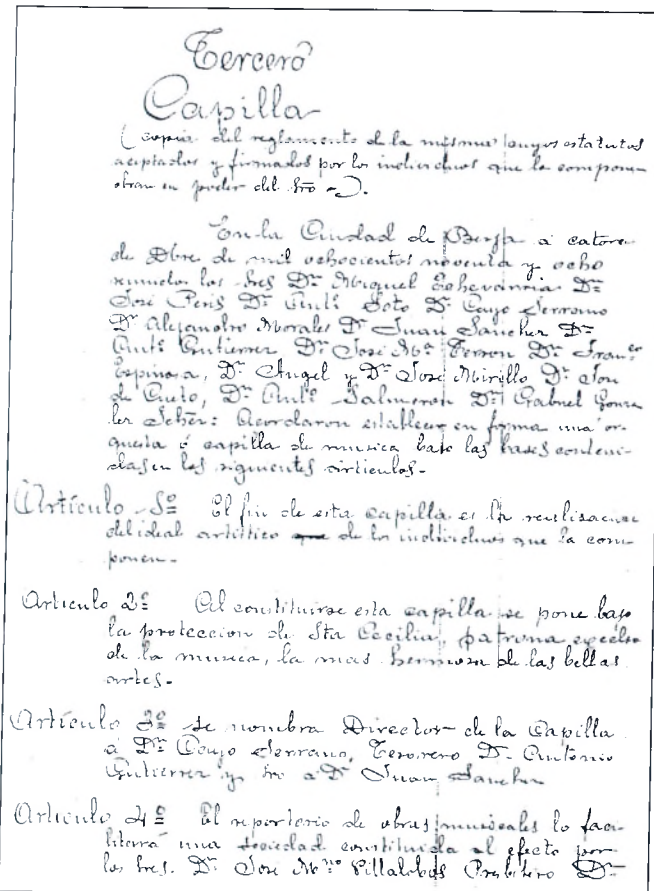 Tercero
Capilla
(copia del reglamento de la misma cuyos estatutos
aceptados y firmados por los individuos que la componen
obran en poder del Srio -).
En la Ciudad de Berja á catorce
de Dbre de mil ochocientos noventa y ocho
reunidos los Sres Dn Miguel Echevarria Dn
José Peris Dn Antº Soto Dn Cayo Serrano
Dn Alejandro Morales Dn Juan Sanchez Dn
Antº Gutierrez Dn José Mª Terron Dn Franco
Espinosa, Dn Angel y Dn José Murillo Dn
de Cueto, Dn Antº Salmeron Dn Gabriel Gonza
lez: Acordaron establecer en forma una or-
questa ó capilla de musica bajo las bases conteni-
das en los siguientes articulos.-
Artículo 1º El fin de esta capilla es la realisacion
del ideal artístico de los individuos que la com-
ponen.-
Articulo 2º Al constituirse esta capilla se pone bajo
la proteccion de Sta Cecilia, patrona excelsa
de la musica, la mas hermosa de las bellas
artes.-
Artículo 3º Se nombra Director de la Capilla
á Dn Cayo Serrano, Tesorero Dn Antonio
Gutierrez y Srio a Dn Juan Sanchez
Articulo 4º El repertorio de obras musicales lo faci-
litará una sociedad constituida al efecto por
los Sres. Dn José Villalobos Presbitero Dn